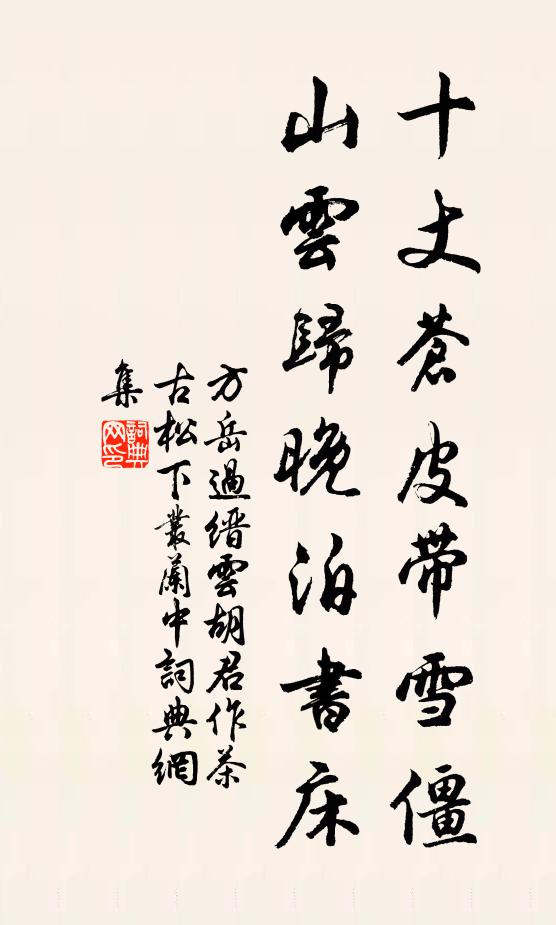 十丈蒼皮帶雪僵
山雲歸晚泊書床
方岳過縉雲胡君作茶
古松下叢蘭中詞典網
集
詞典網印